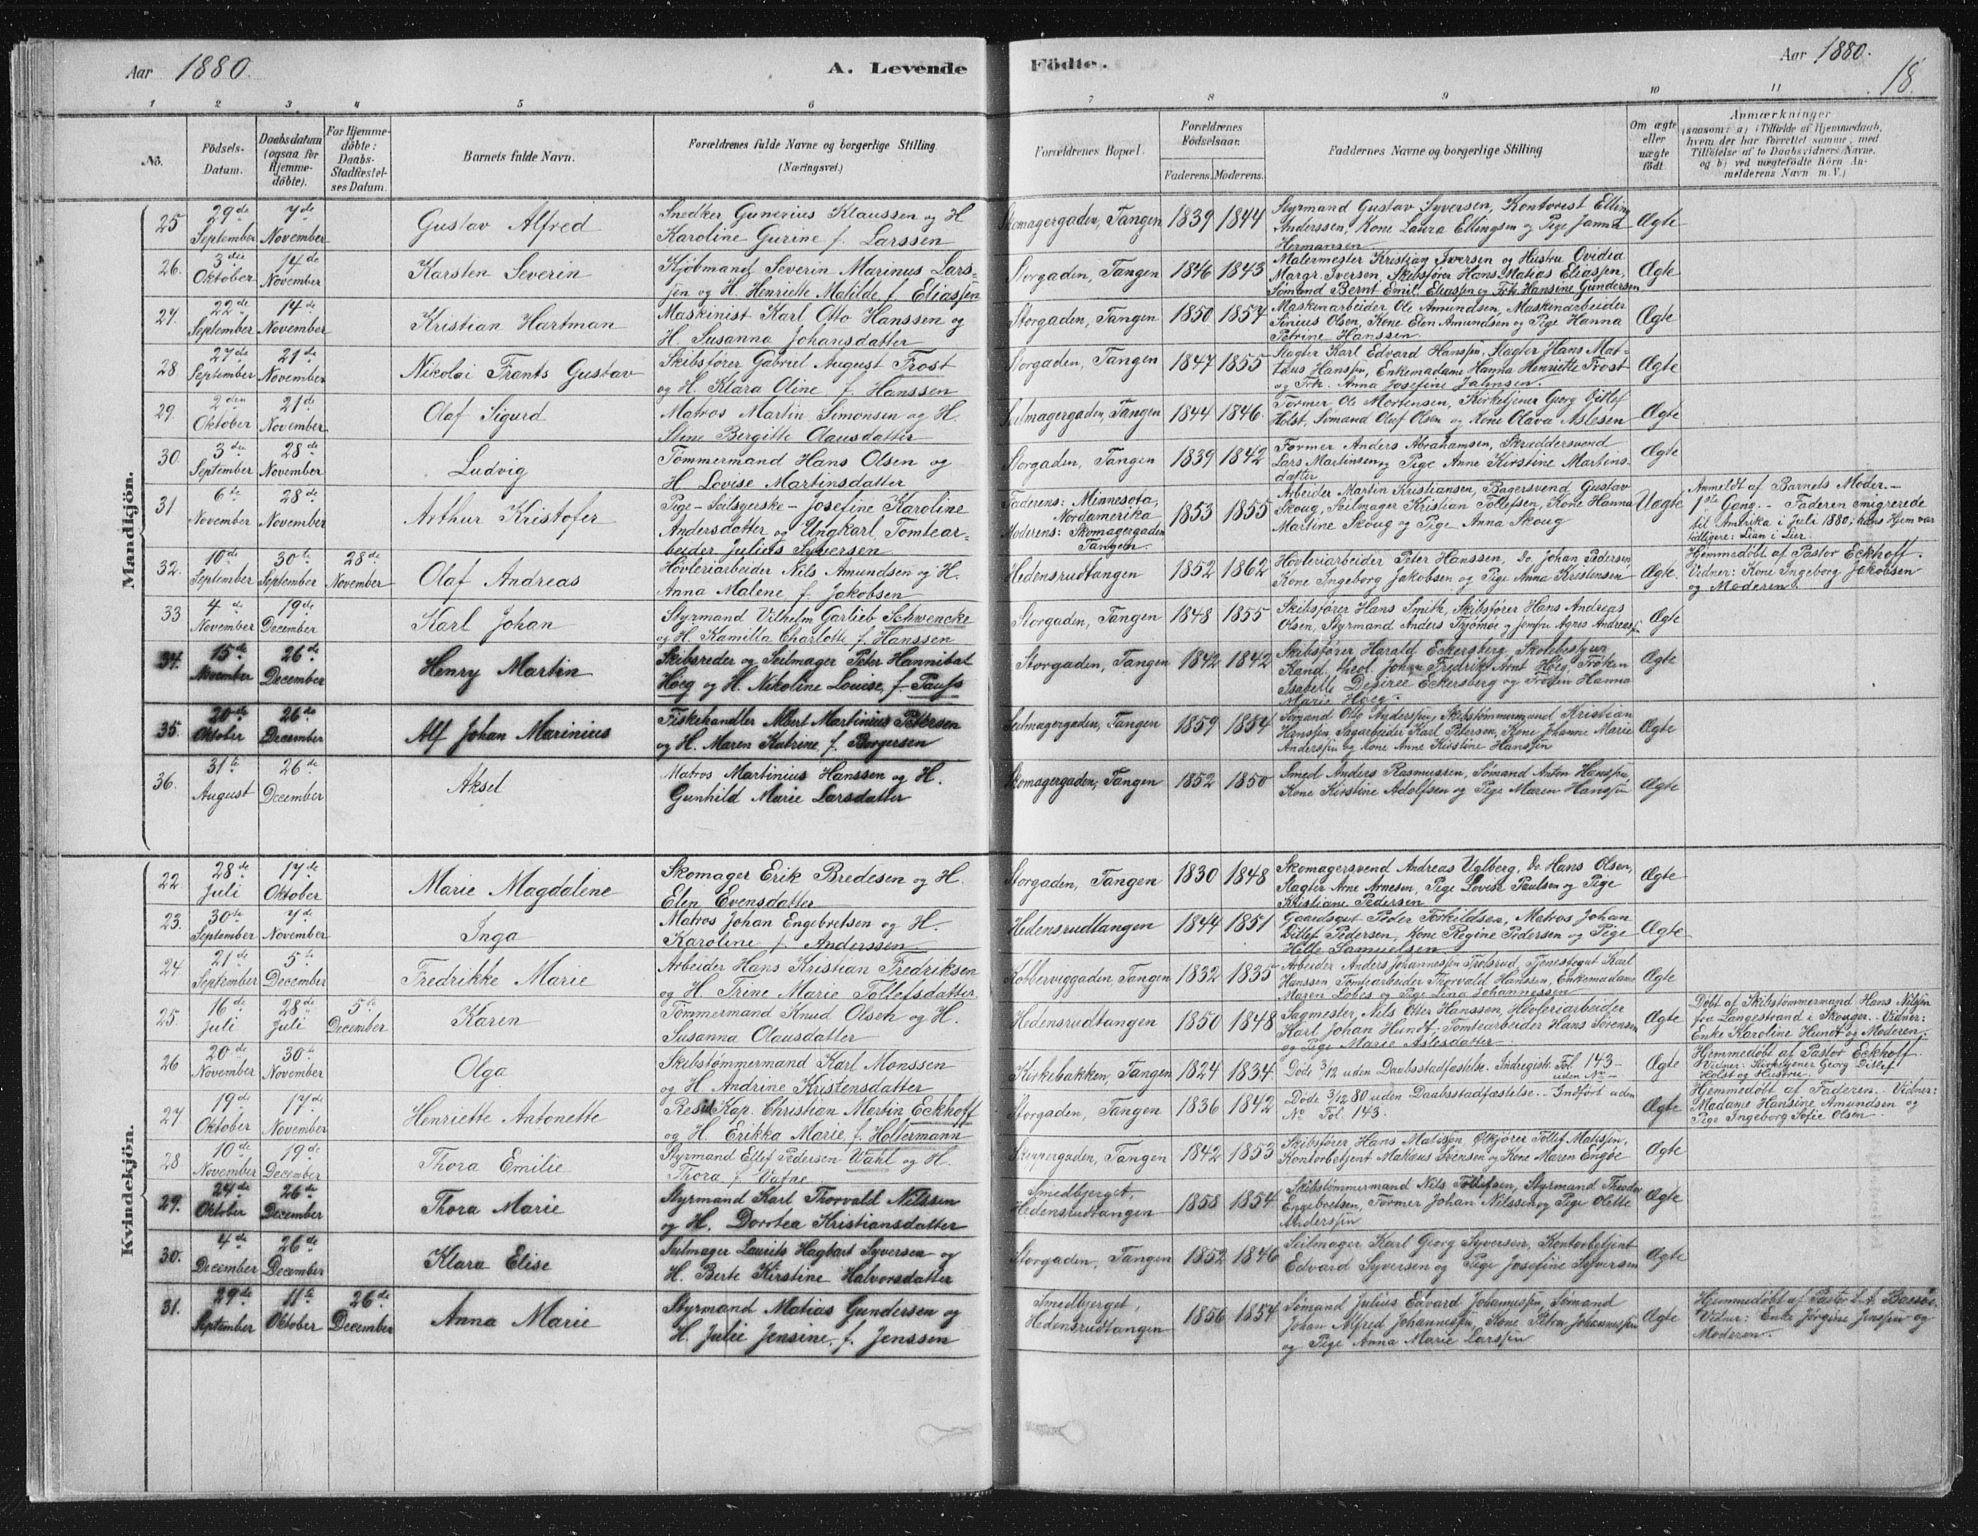 Aar 1880.
A. Levende Födte.
Aar 1880.
18.
1 2 3 4 5 6 7 8 9 10 11
No.
Födsels-Datum.
Daabsdatum (ogsaa for Hjemme-döbte).
For Hjemme-döbte: Daabs-Stadfæstel-ses Datum.
Barnets fulde Navn.
Forældrenes fulde Navne og borgerlige Stilling (Næringsvei.)
Forældrenes Bopæl.
Forældrenes Födselsaar.
Faderens. Moderens.
Faddernes Navne og borgerlige Stilling
Om ægte eller uægte födt.
Anmærkninger
(saasom: a) i Tilfælde af Hjemmedaab, hvem der har forrettet samme, med Tilföielse af to Daabsvidners Navne, og b) ved uægtefödte Börn An-melderens Navn m. V.)
Mandkjön.
25 29de September 7de November Gustav Alfred
Snedker Gunerius Klaussen og H
Karoline Gurine f. Larssen
Skomagergaden, Tangen 1839 1844
Styrmand Gustav Syversen, Kontorist Elling
Anderssen, Kone Laura Ellingsen og Pige Janna
Hermansen. Ægte
26. 3die Oktober 14de November Karsten Severin
Kjöbmand Severin Marinus Lars-
sen og H. Henriette Matilde f. Eliassen
Storgaden, Tangen 1846 1843
Malermester Kristian Iversen og Hustru Ovidia
Margr. Iversen, Skibsfører Hans Matias Eliassen,
Sømand Bernt Emil Eliassen og Frk. Hansine Gundersen Ægte
27. 22de September 14de November Kristian Hartman
Maskinist Karl Otto Hanssen og
H. Susanna Johansdatter
Storgaden, Tangen 1850 1857
Maskinarbeider Ole Amundsen, Maskinarbeider
Sinius Olsen, Kone Elen Amundsen og Pige Hanna
Petrine Hanssen Ægte
28. 27de September 21de November Nikolai Frants Gustav
Skibsfører Gabriel August Frost
og H. Klara Oline f. Hanssen
Storgaden, Tangen 1847 1855
Slagter Karl Edvard Hanssen, Slagter Hans Mat-
tæus Hanssen, Enkemadame Hanna Henriette Frost
og Frk. Anna Josefine Jahnsen. Ægte
29. 2den Oktober 21de November Olaf Sigurd
Matros Martin Simonsen og H.
Stine Bergitte Olausdatter
Seilmagergaden, Tangen 1844 1846.
Former Ole Mortensen, Kirketjener Georg Ditlef
Holst, Sømand Olaf Olsen og Kone Olava Aslesen Ægte
30. 3die September 28de November Ludvig
Tømmermand Hans Olsen og
H Lovise Martinsdatter
Storgaden, Tangen 1839 1842
Former Anders Abrahamsen, Skræddersvend
Lars Martinsen og Pige Anne Kirstine Martens-
datter Ægte
31 6te November 28de November Arthur Kristofer
Pige - Seilsyerske - Josefine Karoline
Andersdatter og Ungkarl, Tomtear-
beider Julius Syversen
Faderens: Minnesota,
Nordamerika
Moderens: Skomagergaden
Tangen. 1853 1855
Arbeider Martin Kristiansen, Bagersvend Gustav
Skoug, Seilmager Kristian Tollefsen, Kone Hanna
Martine Skoug og Pige Anna Skoug Uægte
Anmeldt af Barnets Moder. -
1ste Gang. - Faderen emigrerede
til Amerika i Juli 1880; hans Hjem var
tidligere: Lian i Lier.
32. 10de September 30te September 28de November Olaf Andreas
Høvleriarbeider Nils Amundsen og H.
Anna Malene f. Jakobsen
Hedensrudtangen 1852 1862
Høvleriarbeider Peter Hanssen, Do Johan Pedersen
Kone Ingeborg Jakobsen og Pige Anna Kristensen Ægte.
Hjemmedøbt af Pastor Eckhoff.
Vidner: Kone Ingeborg Jakobsen
og Moderen.
33 4de November 19de December Karl Johan
Styrmand Vilhelm Garlieb Schwencke
og H. Kamilla Charlotte f. Hanssen
Storgaden, Tangen 1848 1855
Skibsfører Hans Smith, Skibsfører Hans Andreas
Olsen, Styrmand Anders Trjømøe og Jomfru Agnes Andreassen Ægte
34. 15de November 26de December Henry Martin
Skibsreder og Seilmager Peter Hannibal
Höeg og H. Nikoline Louise, f. Pauss
Storgaden, Tangen 1842 1842
Skibsfører Harald Eckersberg, Skolebestyrer
Kand. theol. Johan Fredrik Arnt Høeg Frøken
Isabella Desiree Eckersberg og Frøken Hanna
Marie Høeg. Ægte
35. 20de Oktober 26de December Alf Johan Marinius
Fiskehandler Albert Martinius Petersen
og H. Maren Katrine f. Borgersen
Seilmagergaden, Tangen 1859 1854
Sømand Otto Anderssen, Skibstømmermand Kristian
Hanssen, Sagarbeider Karl Petersen, Kone Johanne Marie
Anderssen og Kone Anne Kirstine Hanssen Ægte
36. 31te August 26de December Aksel
Matros Martinius Hanssen og H.
Gunhild Marie Larsdatter
Skomagergaden, Tangen 1852 1850
Smed Anders Rasmussen, Sømand Anton Hanssen,
Kone Kirstine Adolfsen og Pige Maren Hanssen Ægte
Kvindekjön.
22. 28de Juli 17de Oktober Marie Magdalene
Skomager Erik Bredesen og H.
Elen Evensdatter
Storgaden, Tangen 1830 1848
Skomagersvend Andreas Uglberg, Do Hans Olsen,
Slagter Arne Arnesen, Pige Lovise Paulsen og Pige
Kristiane Pedersen Ægte
23. 30te September 7de November Inga
Matros Johan Engebretsen og H.
Karoline f. Anderssen
Hedensrudtangen 1844 1851
Gaardsgut Peder Torkildsen, Matros Johan
Ditlef Pedersen, Kone Regine Pedersen og Pige
Helle Samuelsen Ægte
24 21de September 5te December Fredrikke Marie
Arbeider Hans Kristian Fredriksen
og H. Trine Marie Tollefsdatter
Kobberviggaden, Tangen 1832 1835
Arbeider Anders Johannessen Trolsrud, Tjenestegut Karl
Hanssen, Tomtearbeider Thorvald Hanssen, Enkemadame
Maren Lobes og Pige Lina Johannessen Ægte
25. 16de Juli 28de Juli 5te December Karen
Tømmermand Knud Olsen og H.
Susanna Olausdatter
Hedensrudtangen 1850 1848
Sagmester, Nils Otter Hanssen, Høvleriarbeider
Karl Johan Hundt, Tomtearbeider Hans Sørensen
og Pige Marie Aslesdatter. Ægte
Døbt af Skibstømmermand Hans Nilsen
fra Langestrand i Skouger. - Vidner:
Enke Karoline Hundt og Moderen.
26 20de November 30te November Olga
Skibstømmermand Karl Monssen
og H. Andrine Kristensdatter
Kirkebakken, Tangen 1824 1834
Døde 3/12 uden Daabsstadfæstelse. Indregistr. Fol. 143 -
uden No - Ægte
Hjemmedøbt af Pastor Eckhoff.
Vidner: Kirketjener Georg Ditlef
Holst og Hustru.
27 19de Oktober 17de November Henriette Antonette
Resid. Kap. Christian Martin Eckhoff
og H. Erikka Marie, f. Holtermann
Storgaden, Tangen 1836 1842
Døde 3/12 80 uden Daabsstadfæstelse. Indført uden
No Fol. 143. Ægte
Hjemmedøbt af Faderen. - Vidner:
Madame Hansine Amundsen og
Pige Ingeborg Sofie Olsen.
28 10de November 19de December Thora Emilie
Styrmand Ellef Pedersen Wahl og H.
Thora f. Vafne
Skippergaden, Tangen 1842 1853
Skibsfører Hans Matissen, Ølkjører Tollef Matissen,
Kontorbetjent Markus Svensen og Kone Maren Engøe Ægte
29. 24de Oktober 26de December Thora Marie
Styrmand Karl Thorvald Nilssen
og H. Dorotea Kristiansdatter
Smedbjerget,
Hedensrudtangen 1858 1854
Skibstømmermand Nils Tollefsen, Styrmand Theodor
Engebretsen, Former Johan Nilssen og Pige Olette
Anderssen Ægte
30. 4de December 26de December Klara Elise
Seilmager Laurits Hagbart Syversen og
H. Berte Kirstine Halvorsdatter
Storgaden, Tangen 1852 1846
Seilmager Karl Georg Syversen, Kontorbetjent
Edvard Syversen og Pige Josefine Syversen Ægte
31. 29de September 11te Oktober 26de December Anna Marie
Styrmand Matias Gundersen og
H. Julie Jensine, f. Jenssen
Smedbjerget,
Hedensrudtangen 1856 1854
Sømand Julius Edvard Johannessen, Sømand
Johan Alfred Johannessen, Kone Petra Johannessen
og Pige Anna Marie Larssen Ægte
Hjemmedøbt af Pastor
Vidner: Enke Jørgine Jenssen og
Moderen.